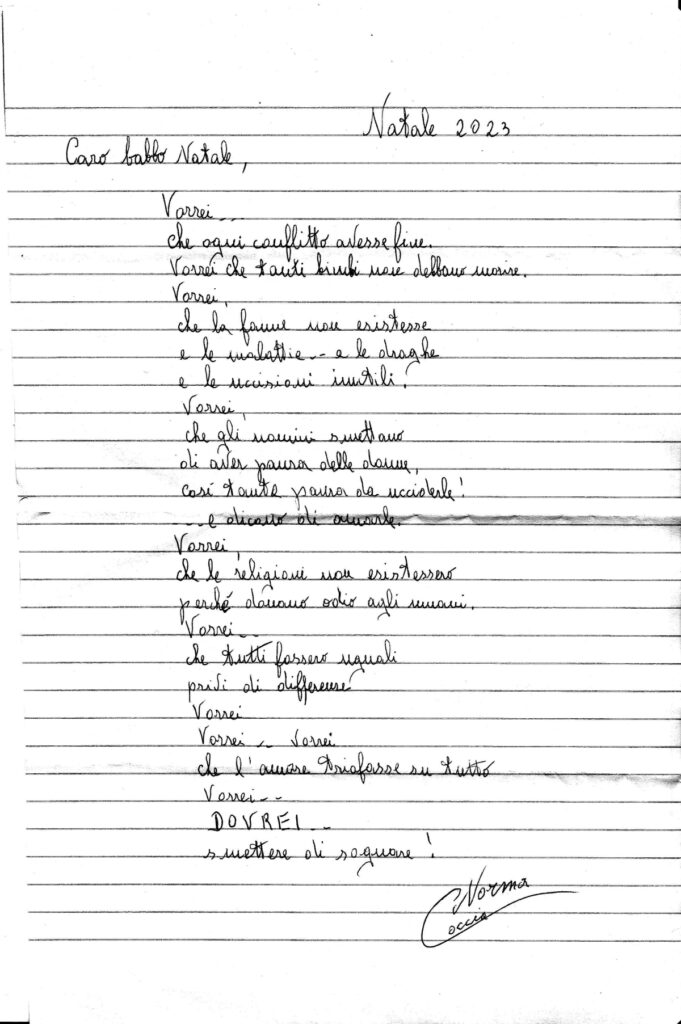 Natale 2023
Caro babbo Natale,
Vorrei...
che ogni conflitto avesse fine.
Vorrei che tanti bimbi non debbano morire.
Vorrei,
che la fame non esistesse
e le malattie... e le droghe
e le uccisioni inutili!
Vorrei,
che gli uomini smettano
di aver paura delle donne,
così tanta paura da ucciderle!
... e dicano di amarle.
Vorrei,
che le religioni non esistessero
perché donano odio agli umani.
Vorrei...
che tutti fossero uguali
privi di differenze
Vorrei
Vorrei... vorrei
che l'amore triofasse su tutto
Vorrei...
DOVREI...
smettere di sognare!
Norma
Coccia